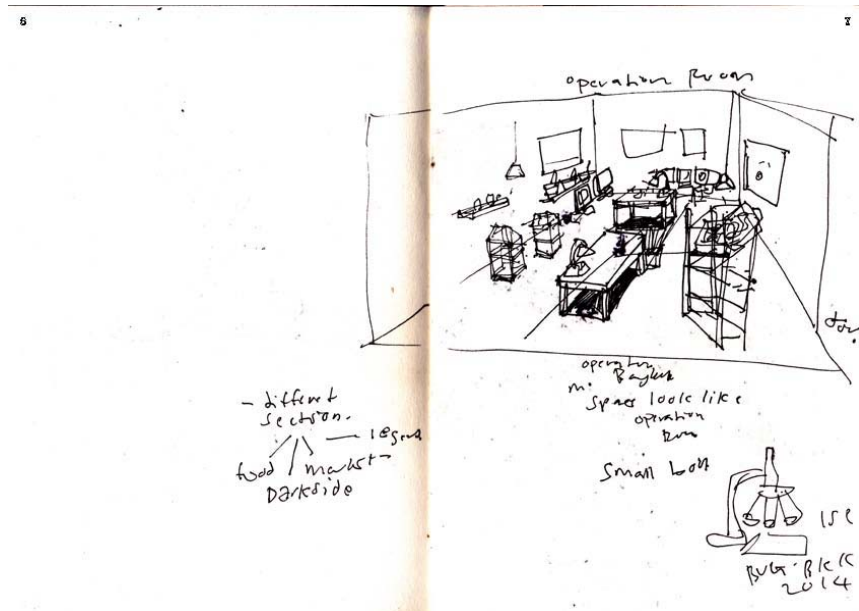 6
7
operation Room
- different
section.
food market
Darkside
operation
Bangkok
Space look like
operation
Room
Small
BUG. BKK
2014